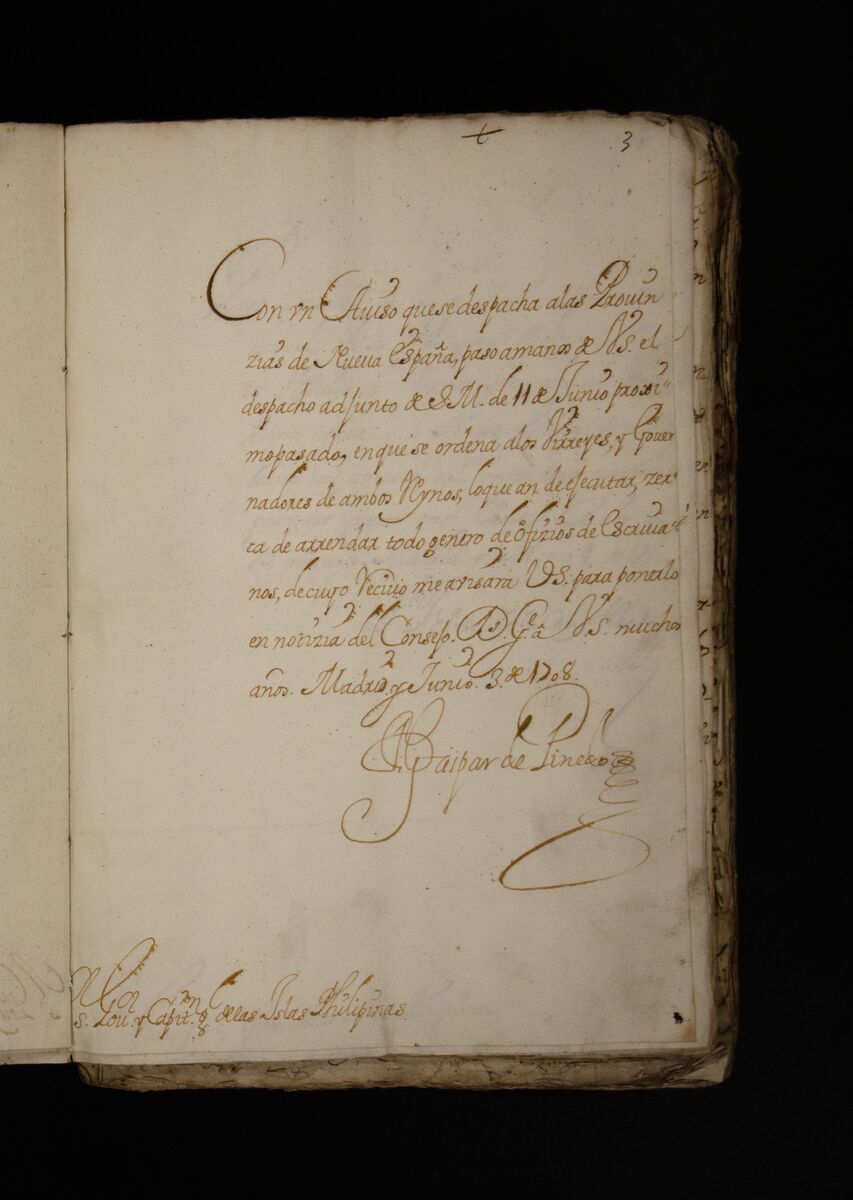 3
Con vn Auiso que se despacha a las Prouin
zias de Nueva España, paso a manos de V.S. el
despacho adjunto de S.M. de 11 de Junio proxi=
mo pasado, en que se ordena a los Virreyes, y Gouer
nadores de ambos Rynos, lo que an de ejecutar, zer
ca de arrendar todo genero de ofizios de Escriua=
nos, de cuyo Reciuo me avisara V.S. para ponerlo
en notizia del Consejo. Ds. Ge. a V.S. muchos
años. Madrid y Junio 3. de 1708.
Gaspar de Pinedo
S. Gou.or y Capit.n g de las Islas Philipinas.